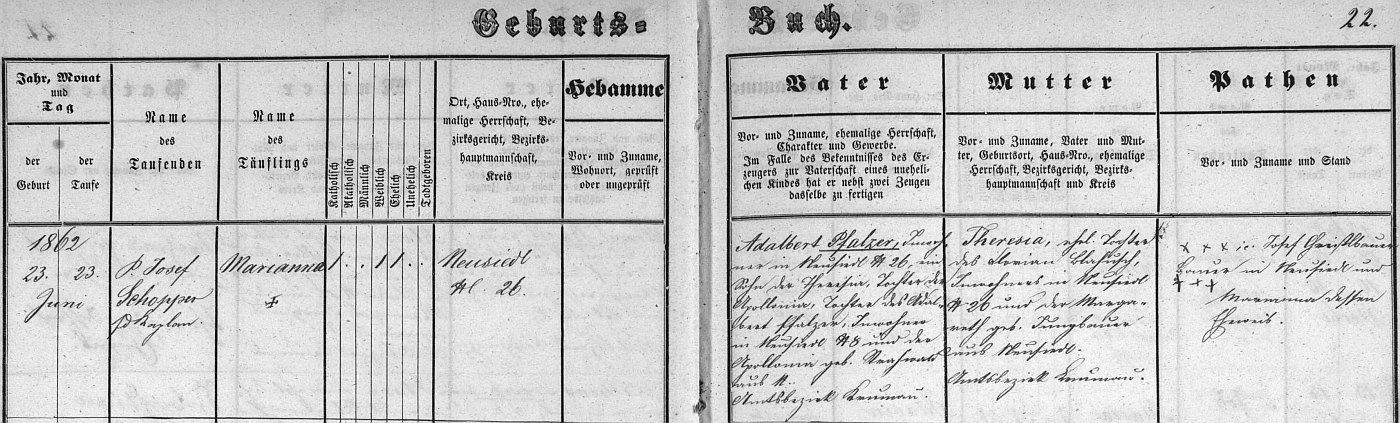 Geburts-
Buch.
22.
Jahr, Monat
und
Tag
der
Geburt
der
Taufe
Name
des
Taufenden
Name
des
Täuflings
Katholisch
Akatholisch
Männlich
Weiblich
Ehelich
Unehelich
Todtgeboren
Ort, Haus-Nro., ehe-
malige Herrschaft, Be-
zirksgericht, Bezirks-
hauptmannschaft,
Kreis
Hebamme
Vor- und Zuname,
Wohnort, geprüft
oder ungeprüft
Vater
Vor- und Zuname, ehemalige Herrschaft,
Charakter und Gewerbe.
Im Falle des Bekenntnisses des Er-
zeugers zur Vaterschaft eines uneheli-
chen Kindes hat er nebst zwei Zeugen
dasselbe zu fertigen
Mutter
Vor- und Zuname, Vater und Mut-
ter, Geburtsort, Haus-Nro., ehemalige
Herrschaft, Bezirksgericht, Bezirks-
hauptmannschaft und Kreis
Pathen
Vor- und Zuname und Stand
1862
23. 23.
Juni
P. Josef
Schopper
Kaplan.
Marianna
+
1 . . 1 1 . .
Neusiedl
N. 26.
Adalbert Pfalzer, Inwoh-
ner in Neusiedl N 26, ein
Sohn der Theresia, Tochter der
Apollonia, Tochter des Adal-
bert Pfalzer, Inwohner
in Neusiedl N 8 und der
Apollonia geb.
aus N.
Amtsbezirk Krumau.
Theresia, ehel. Tochter
des Florian Blahusch,
Inwohners in Neusiedl
N 26 und der Marga-
reth geb. Jungbauer
aus Neusiedl.
Amtsbezirk Krumau.
+ + + Josef
Bauer in Neusiedl und
+ + +
Marianna dessen
Eheweib.